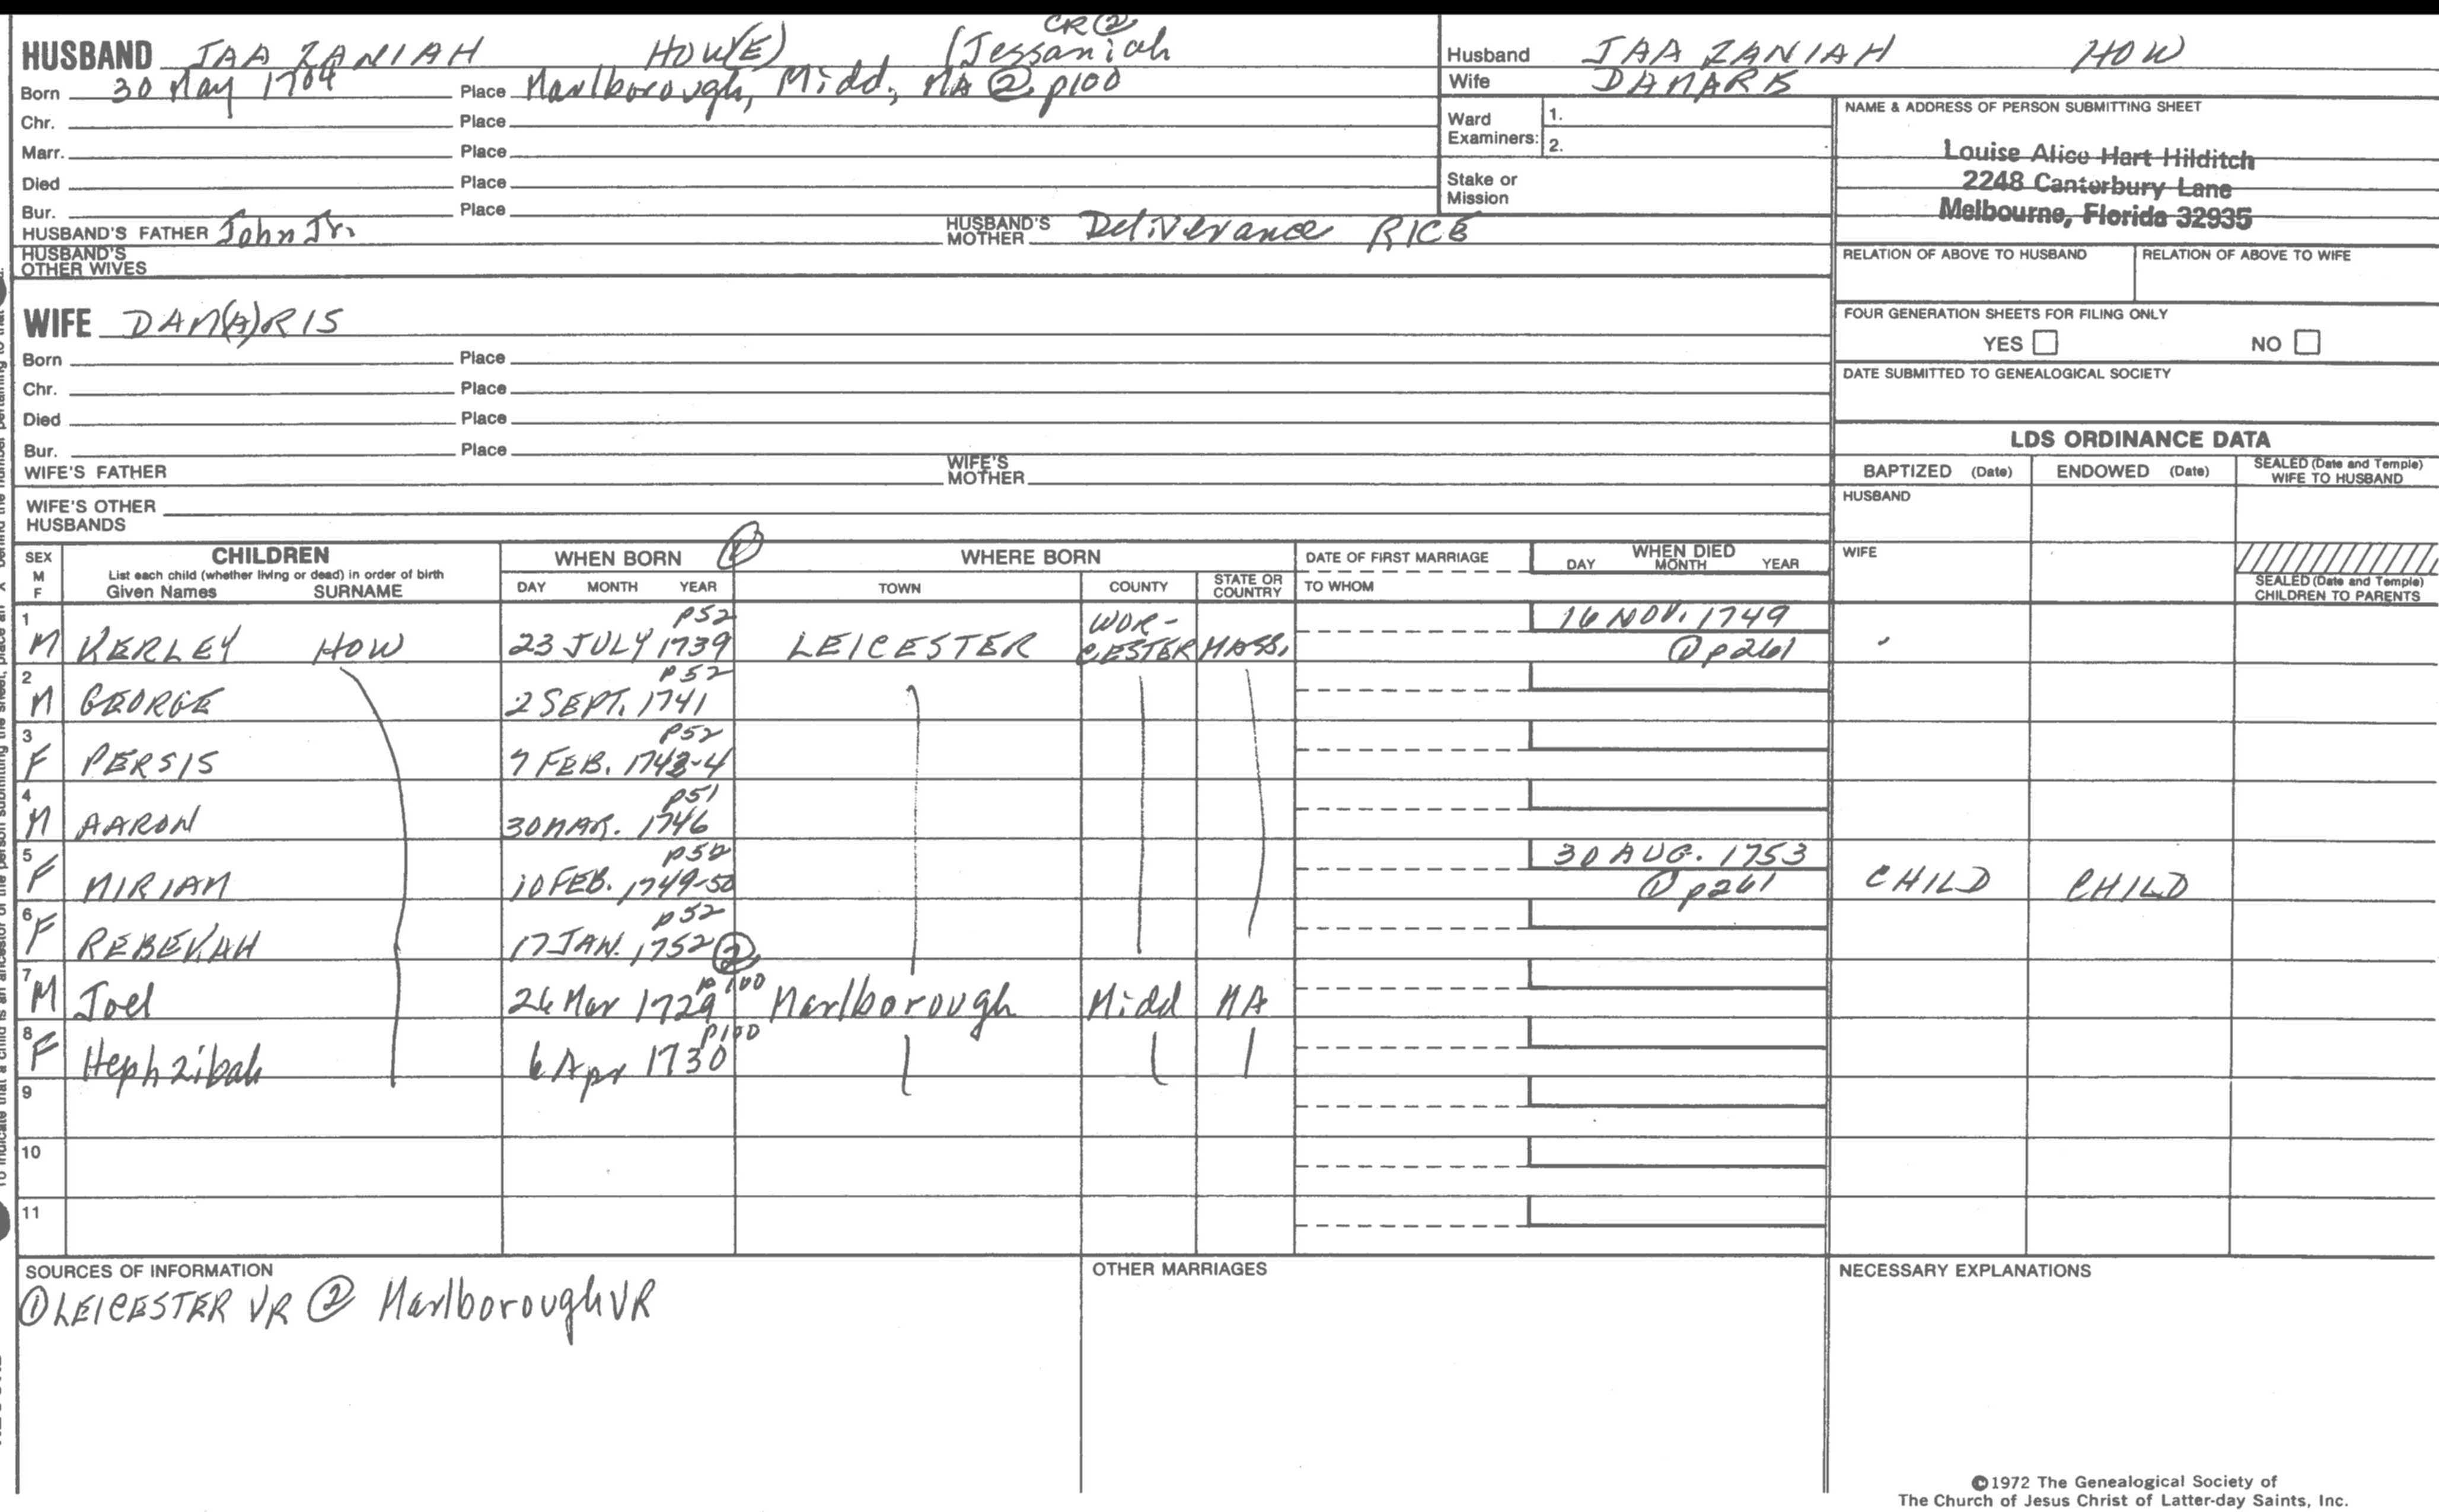 CR②
HUSBAND JAA ZANIAH HOW(E) (Jessaniah
Born 30 May 1704 Place Marlborough, Midd., MA ② p100
Chr. Place
Marr. Place
Died Place
Bur. Place
HUSBAND'S FATHER John Jr. HUSBAND'S MOTHER Deliverance RICE
HUSBAND'S OTHER WIVES
Husband JAA ZANIAH HOW
Wife DAMARIS
Ward Examiners: 1.
2.
Stake or Mission
NAME & ADDRESS OF PERSON SUBMITTING SHEET
Louise Alice Hart Hilditch
2248 Canterbury Lane
Melbourne, Florida 32935
RELATION OF ABOVE TO HUSBAND RELATION OF ABOVE TO WIFE
WIFE DAM(A)RIS
Born Place
Chr. Place
Died Place
Bur. Place
WIFE'S FATHER WIFE'S MOTHER
WIFE'S OTHER HUSBANDS
FOUR GENERATION SHEETS FOR FILING ONLY
YES NO
DATE SUBMITTED TO GENEALOGICAL SOCIETY
LDS ORDINANCE DATA
BAPTIZED (Date) ENDOWED (Date) SEALED (Date and Temple) WIFE TO HUSBAND
HUSBAND
WIFE
SEALED (Date and Temple) CHILDREN TO PARENTS
SEX M F CHILDREN WHEN BORN ① WHERE BORN DATE OF FIRST MARRIAGE WHEN DIED
List each child (whether living or dead) in order of birth
Given Names SURNAME DAY MONTH YEAR TOWN COUNTY STATE OR COUNTRY TO WHOM DAY MONTH YEAR
1 M KERLEY HOW 23 JULY 1739 p52 LEICESTER WOR-CESTER MASS. 16 NOV. 1749 ① p261
2 M GEORGE 2 SEPT. 1741 p52
3 F PERSIS 7 FEB. 1743-4 p52
4 M AARON 30 MAR. 1746 p51
5 F MIRIAM 10 FEB. 1749-50 p52 30 AUG. 1753 ① p261 CHILD CHILD
6 F REBEKAH 17 JAN. 1752 p52
7 M Joel 26 Mar 1729 ② p100 Marlborough Midd MA
8 F Hephzibah 6 Apr 1730 p100
9
10
11
SOURCES OF INFORMATION
① LEICESTER VR ② Marlborough VR
OTHER MARRIAGES
NECESSARY EXPLANATIONS
©1972 The Genealogical Society of
The Church of Jesus Christ of Latter-day Saints, Inc.